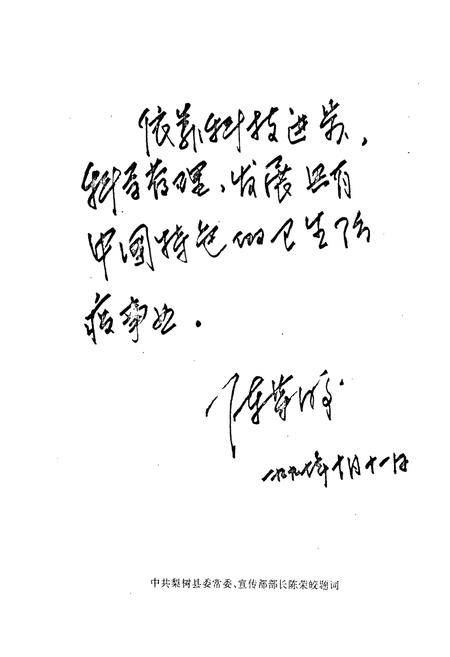 依靠科技进步，
科学管理、发展具有
中国特色的卫生防
疫事业。
陈荣皎
一九九七年十月十一日
中共梨树县委常委、宣传部部长陈荣皎题词